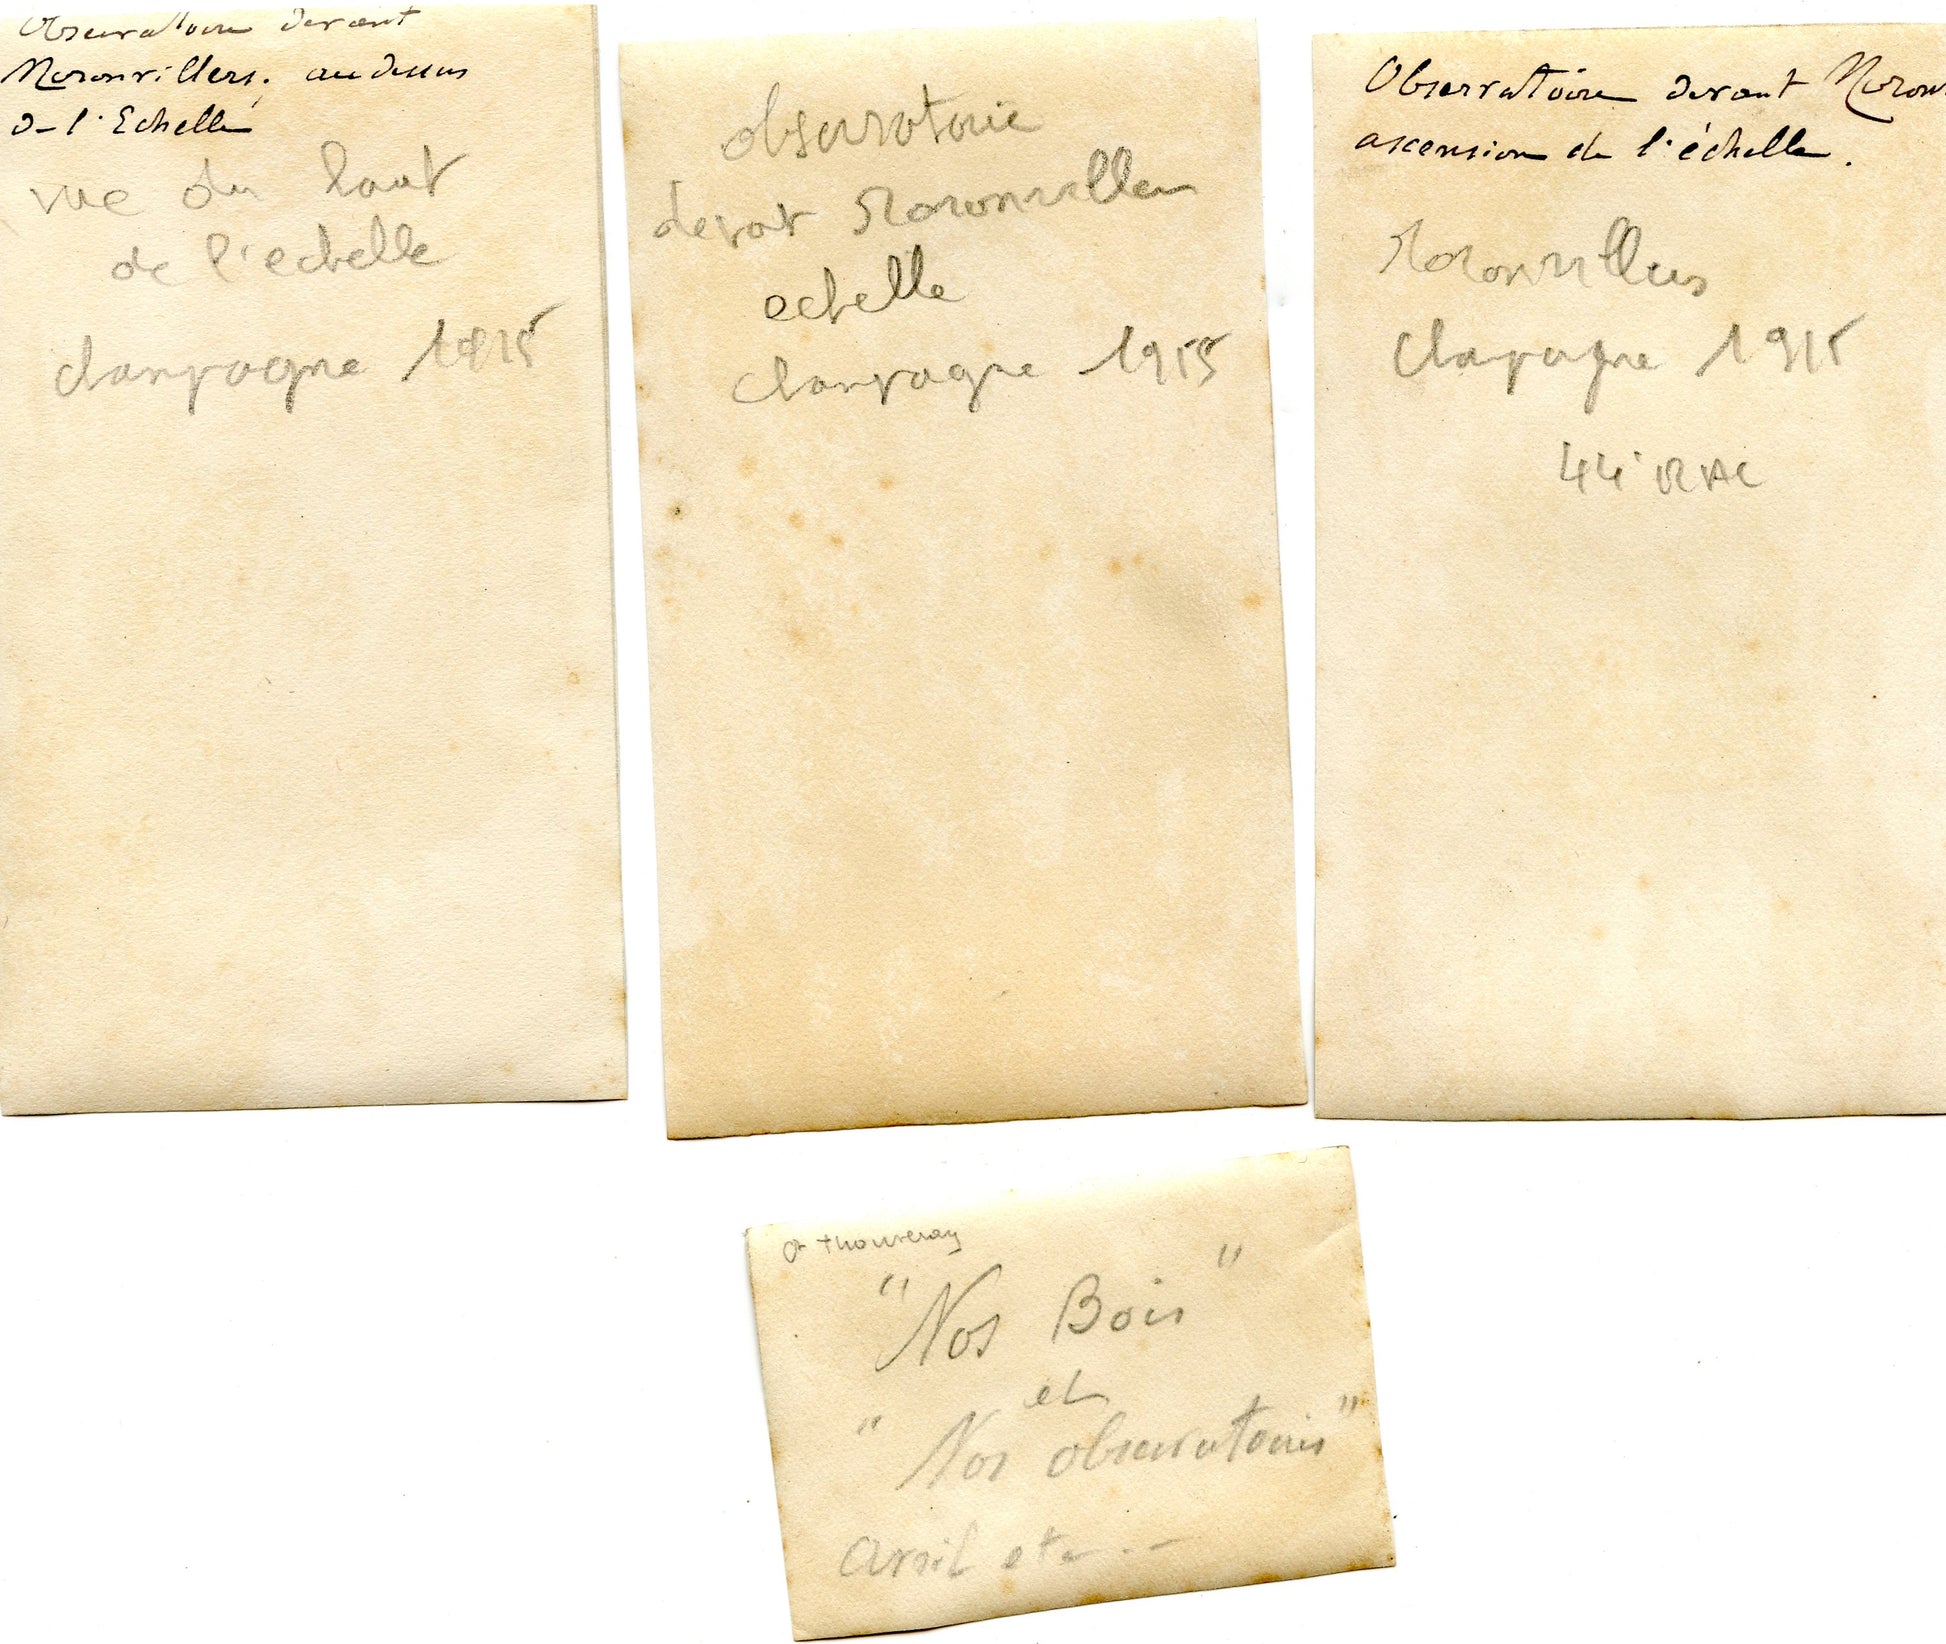 Observatoire devant
Moronvillers, au dessus
de l'Echelle
vue du haut
de l'echelle
champagne 1915
observatoire
devat Moronvillers
echelle
champagne 1915
Observatoire devant Moron
ascension de l'échelle.
Moronvillers
Champagne 1915
44e RAC
"Nos Bois"
et
"Nos observatoires"
avril etc...